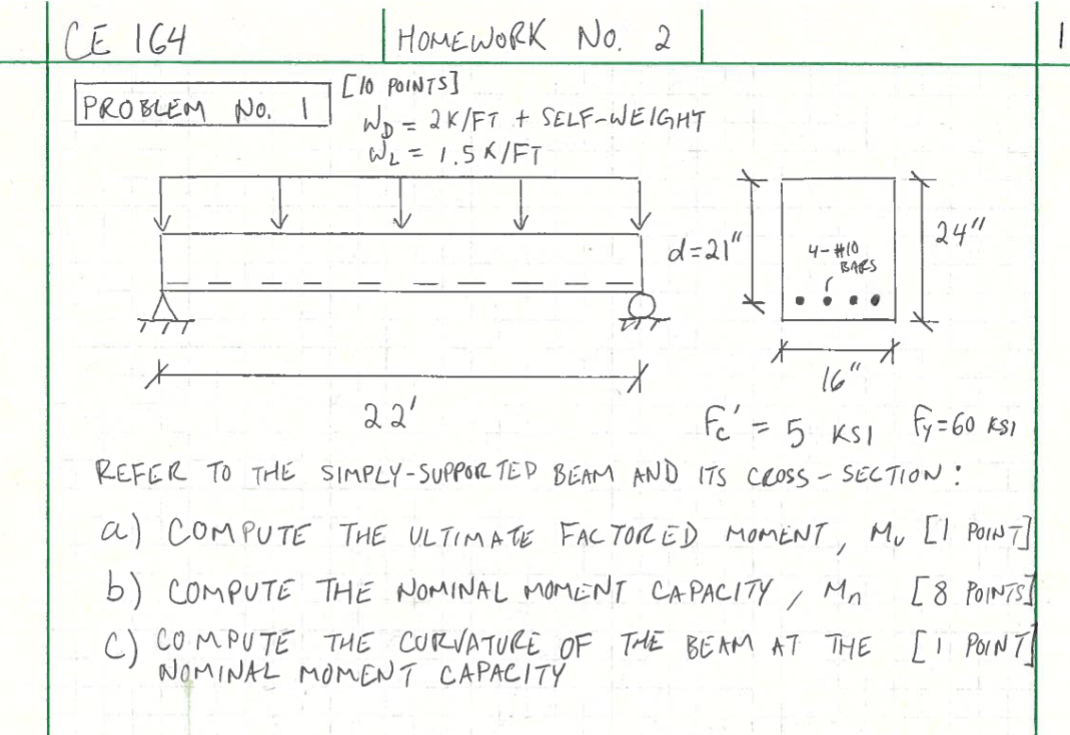 CE 164 HOMEWORK NO. 2 1
PROBLEM NO. 1 [10 POINTS]
W_D = 2K/FT + SELF-WEIGHT
W_L = 1.5 K/FT
d=21"
4-#10
BARS
24"
16"
22'
Fc' = 5 KSI fy=60 KSI
REFER TO THE SIMPLY-SUPPORTED BEAM AND ITS CROSS-SECTION:
a) COMPUTE THE ULTIMATE FACTORED MOMENT, Mu [1 POINT]
b) COMPUTE THE NOMINAL MOMENT CAPACITY, Mn [8 POINTS]
C) COMPUTE THE CURVATURE OF THE BEAM AT THE [1 POINT]
NOMINAL MOMENT CAPACITY